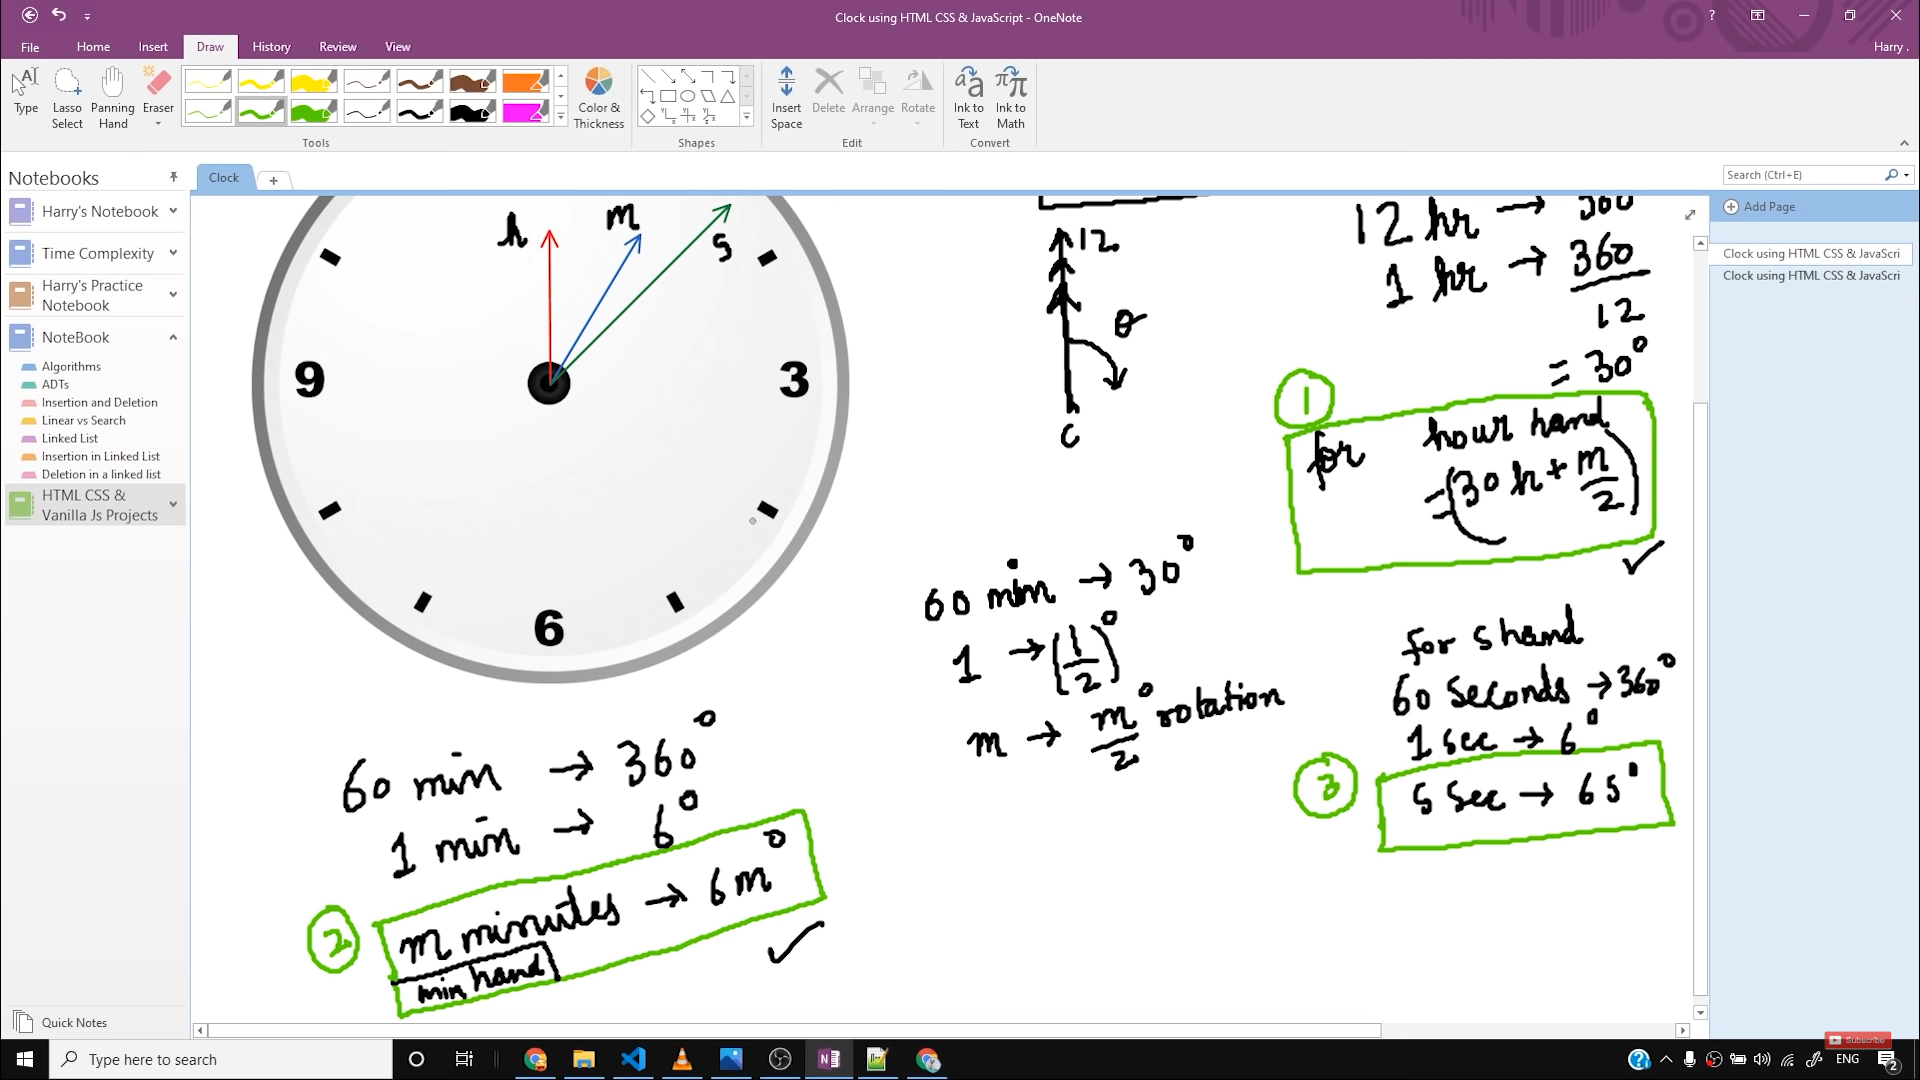 Clock using HTML CSS & JavaScript - OneNote
?
File Home Insert Draw History Review View
Harry .
Type
Lasso Select
Panning Hand
Eraser
Color & Thickness
Insert Space
Delete
Arrange
Rotate
Ink to Text
Ink to Math
Tools Shapes Edit Convert
Notebooks
Clock
+
Search (Ctrl+E)
Harry's Notebook
Time Complexity
Harry's Practice
Notebook
NoteBook
Algorithms
ADTs
Insertion and Deletion
Linear vs Search
Linked List
Insertion in Linked List
Deletion in a linked list
HTML CSS &
Vanilla Js Projects
Quick Notes
Add Page
Clock using HTML CSS & JavaScri
Clock using HTML CSS & JavaScri
h m s
9 3
6
12
θ
C
12 hr → 360
1 hr → 360
12
= 30°
1
for hour hand
=(30 h + m/2)
60 min → 30°
1 → (1/2)°
m → m/2° rotation
for s hand
60 seconds → 360°
1 sec → 6°
3
s sec → 6s°
60 min → 360°
1 min → 6°
2
m minutes → 6m°
min hand
Type here to search
ENG
2
Subscribe